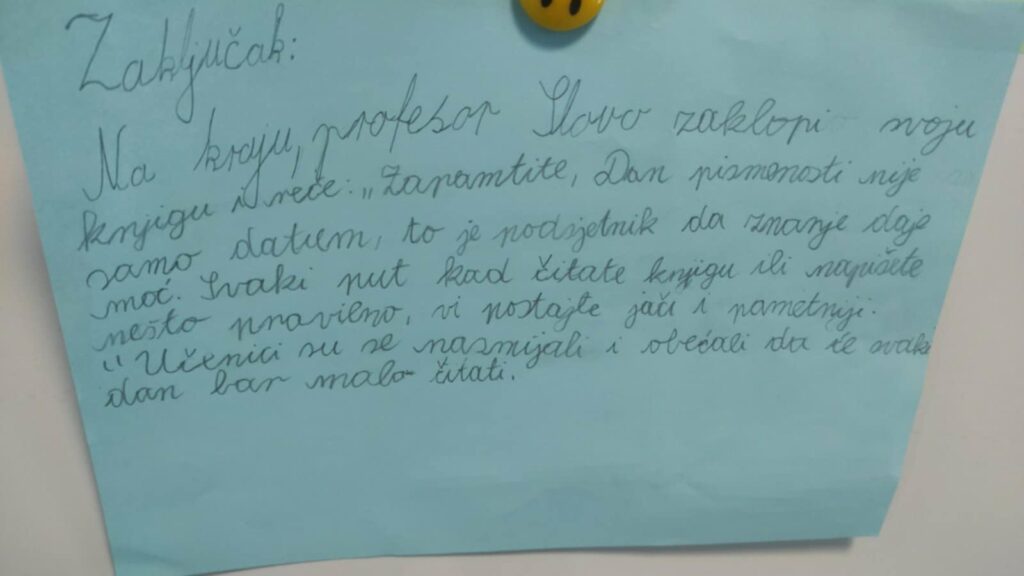 Zaključak:
Na kraju, profesor Slovo zaklopi svoju
knjigu i reče: „Zapamtite, Dan pismenosti nije
samo datum, to je podsjetnik da znanje daje
moć. Svaki put kad čitate knjigu ili napišete
nešto pravilno, vi postajte jači i pametniji.
" Učenici su se nasmijali i obećali da će svaki
dan bar malo čitati.